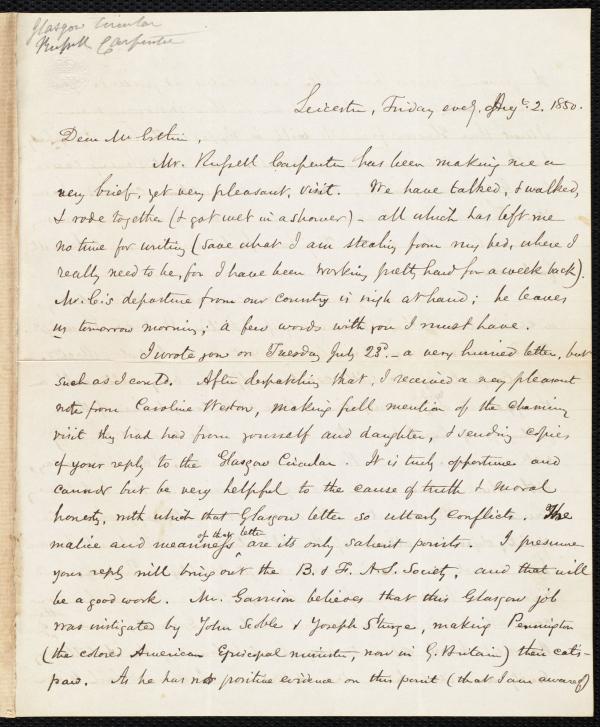 Glasgow Circular
Russell Carpenter
Leicester, Friday eve'g. Aug. 2. 1850.
Dear Mr Estlin,
Mr. Russell Carpenter has been making me a
very brief, yet very pleasant, visit. We have talked, & walked,
& rode together (& got wet in a shower) – all which has left me
no time for writing (save what I am stealing from my bed, where I
really need to be, for I have been working pretty hard for a week back).
Mr. C.'s departure from our country is nigh at hand; he leaves
us tomorrow morning; a few words with you I must have.
I wrote you on Tuesday July 23d. – a very hurried letter, but
such as I could. After despatching that, I received a very pleasant
note from Caroline Weston, making full mention of the charming
visit they had had from yourself and daughter, & sending copies
of your reply to the Glasgow Circular. It is truly opportune and
cannot but be very helpful to the cause of truth & moral
honesty, with which that Glasgow letter so utterly conflicts. The
malice and meanness of that letter are its only salient points. I presume
your reply will bring out the B. & F. A.S. Society, and that will
be a good work. Mr. Garrison believes that this Glasgow job
was instigated by John Scoble & Joseph Sturge, making Pennington
(the colored American Episcopal minister, now in G. Britain) their cats-
paw. As he has not positive evidence on this point (that I am aware of)